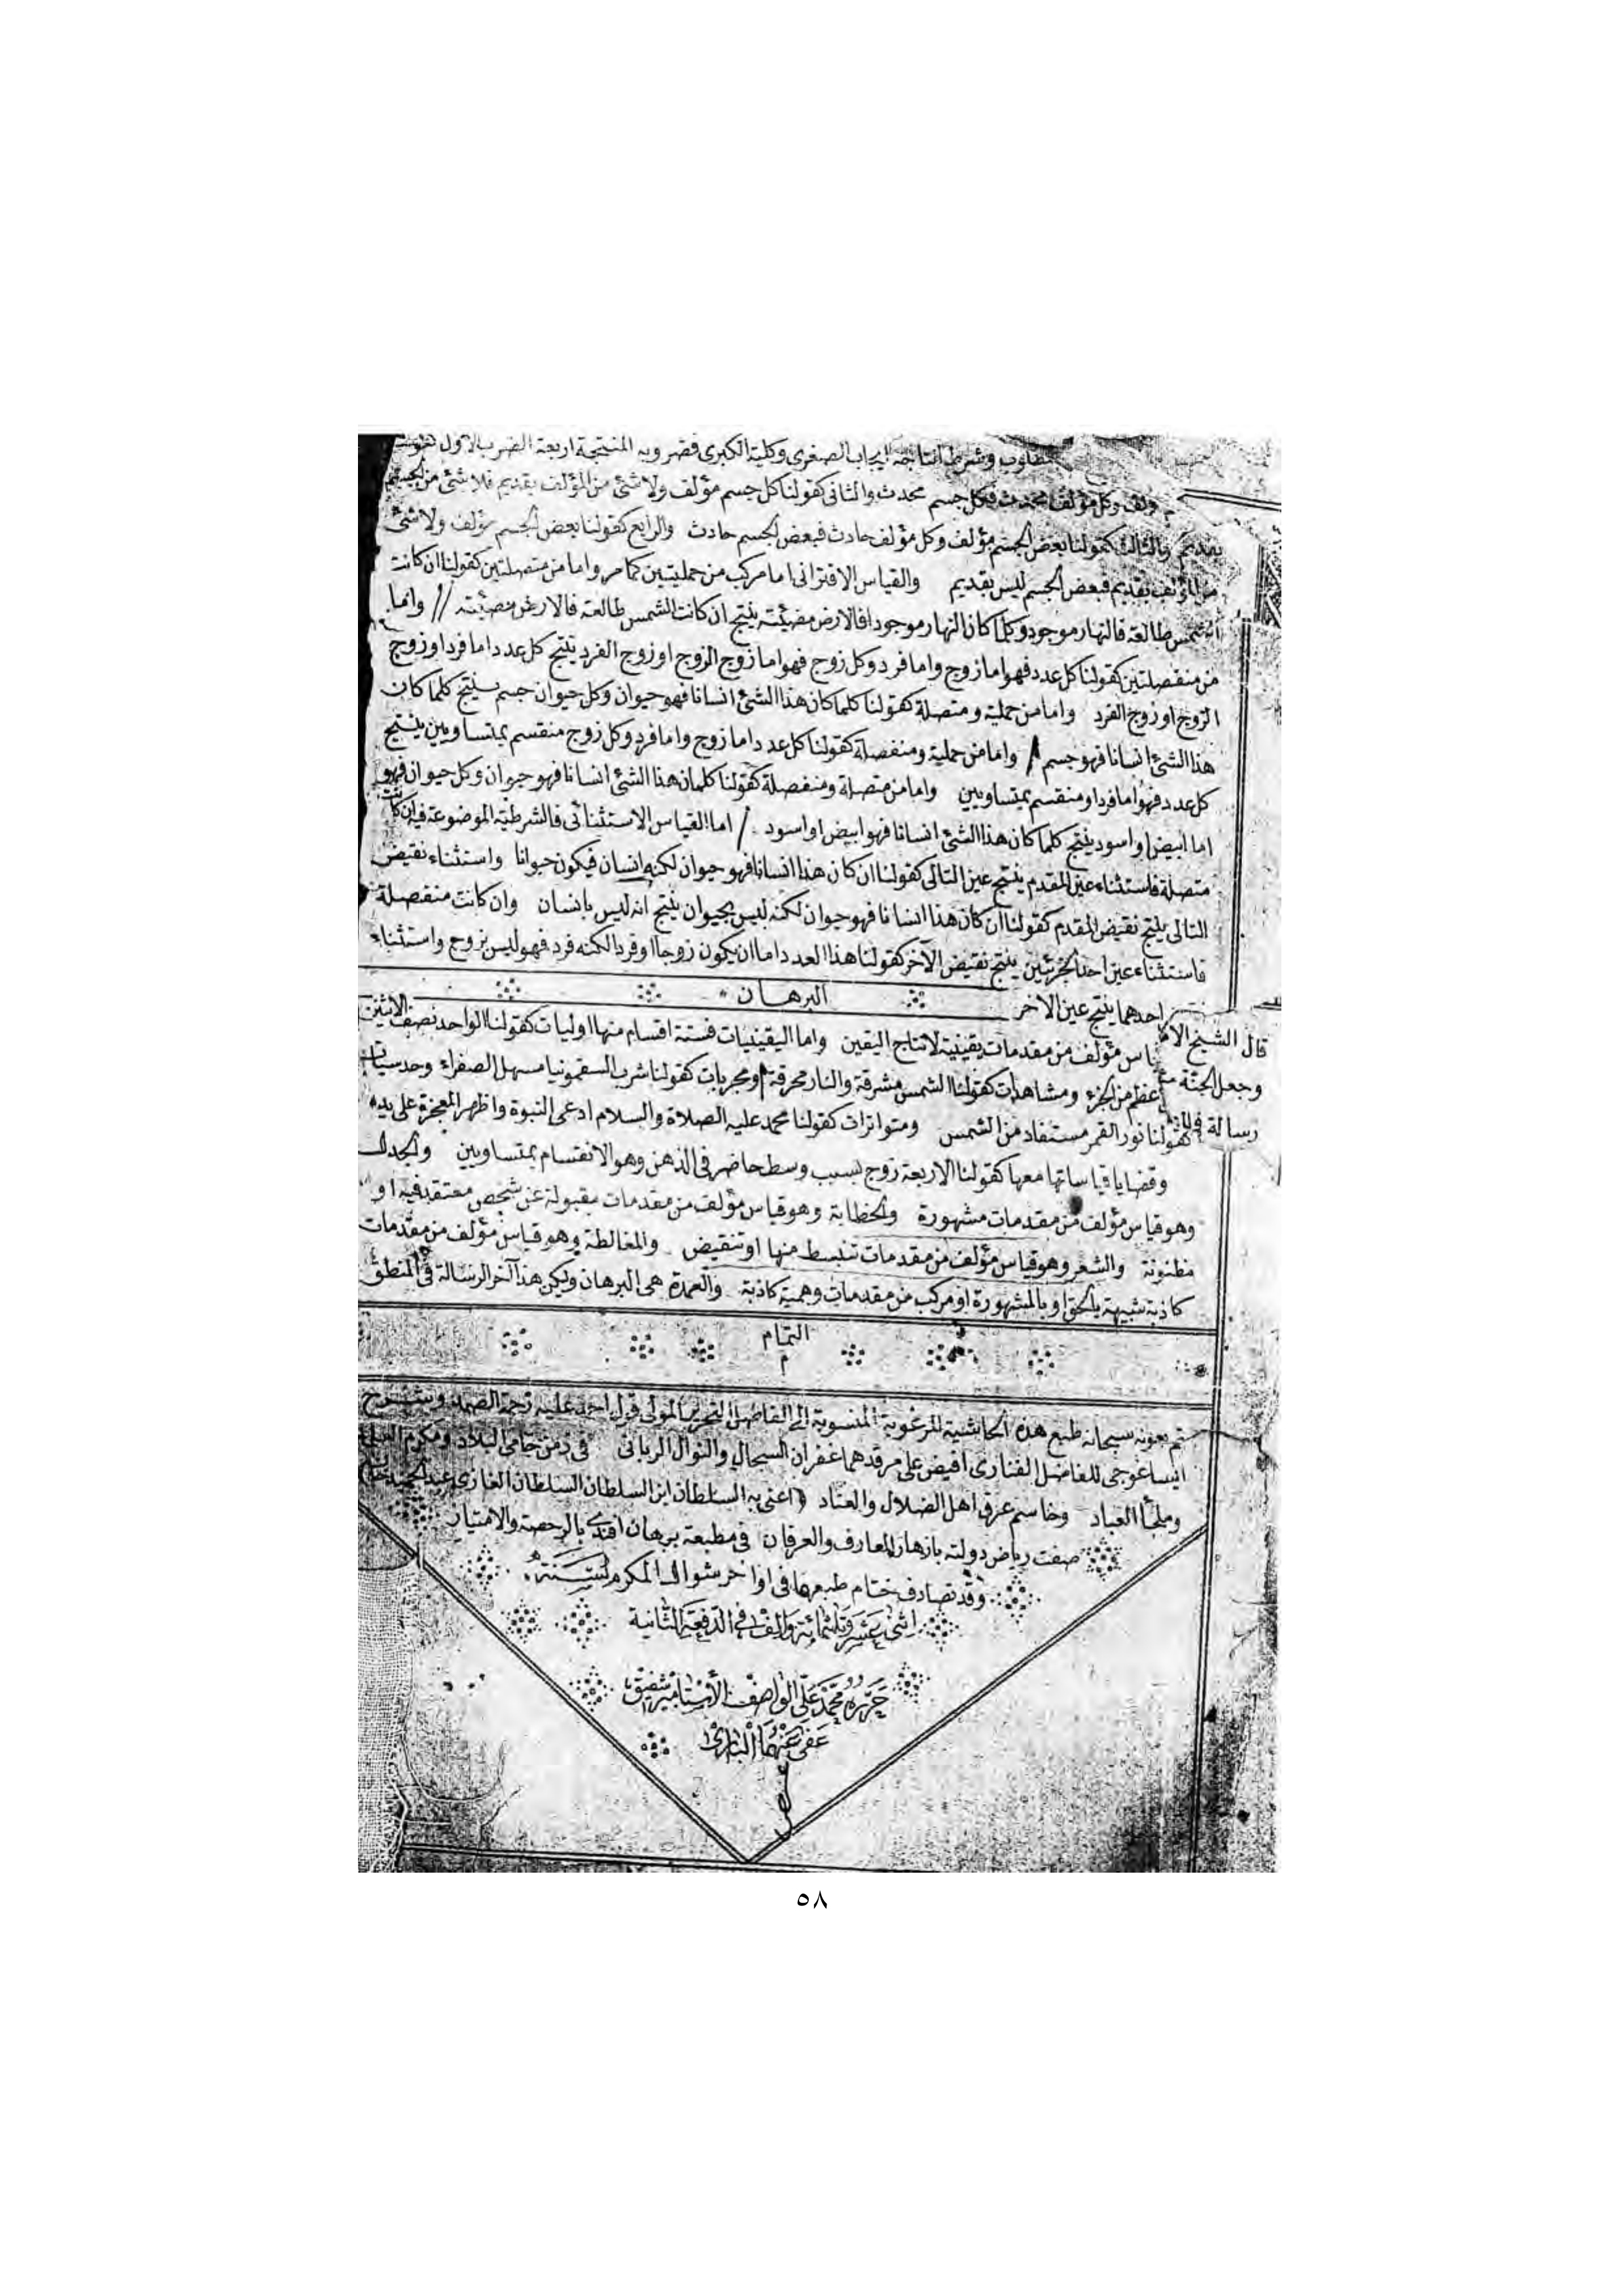 وشرط انتاجه ايجاب الصغرى وكلية الكبرى فضروبه المنتجة اربعة الضرب الاول كقولنا
مؤلف وكل مؤلف محدث فكل جسم محدث والثانى كقولنا كل جسم مؤلف ولا شئ من المؤلف بقديم فلا شئ من الجسم
بقديم والثالث كقولنا بعض الجسم مؤلف وكل مؤلف حادث فبعض الجسم حادث والرابع كقولنا بعض الجسم مؤلف ولا شئ
من المؤلف بقديم فبعض الجسم ليس بقديم والقياس الاقترانى اما مركب من حمليتين كما مر واما من متصلتين كقولنا ان كانت
الشمس طالعة فالنهار موجود وكلما كان النهار موجودا فالارض مضيئة ينتج ان كانت الشمس طالعة فالارض مضيئة // واما
من منفصلتين كقولنا كل عدد فهو اما زوج واما فرد وكل زوج فهو اما زوج الزوج او زوج الفرد ينتج كل عدد اما فرد او زوج
الزوج او زوج الفرد واما من حملية ومتصلة كقولنا كلما كان هذا الشئ انسانا فهو حيوان وكل حيوان جسم ينتج كلما كان
هذا الشئ انسانا فهو جسم / واما من حملية ومنفصلة كقولنا كل عدد اما زوج واما فرد وكل زوج منقسم بمتساويين ينتج
كل عدد فهو اما فرد او منقسم بمتساويين واما من متصلة ومنفصلة كقولنا كلما كان هذا الشئ انسانا فهو حيوان وكل حيوان فهو
اما ابيض او اسود ينتج كلما كان هذا الشئ انسانا فهو ابيض او اسود / اما القياس الاستثنائى فالشرطية الموضوعة فيه ان كانت
متصلة فاستثناء عين المقدم ينتج عين التالى كقولنا ان كان هذا انسانا فهو حيوان لكنه انسان فيكون حيوانا واستثناء نقيض
التالى ينتج نقيض المقدم كقولنا ان كان هذا انسانا فهو حيوان لكنه ليس بحيوان ينتج انه ليس بانسان وان كانت منفصلة
فاستثناء عين احد الجزئين ينتج نقيض الآخر كقولنا هذا العدد اما ان يكون زوجا او فردا لكنه فرد فهو ليس بزوج واستثناء
احدهما ينتج عين الاخر
البرهان
مؤلف من مقدمات يقينية لانتاج اليقين واما اليقينيات فستة اقسام منها اوليات كقولنا الواحد نصف الاثنين
اعظم من الجزء ومشاهدات كقولنا الشمس مشرقة والنار محرقة ومجربات كقولنا شرب السقمونيا مسهل الصفراء وحدسيات
كقولنا نور القمر مستفاد من الشمس ومتواترات كقولنا محمد عليه الصلاة والسلام ادعى النبوة واظهر المعجزة على يده
وقضايا قياساتها معها كقولنا الاربعة زوج بسبب وسط حاضر فى الذهن وهو الانقسام بمتساويين والجدل
وهو قياس مؤلف من مقدمات مشهورة والخطابة وهو قياس مؤلف من مقدمات مقبولة عن شخص معتقد فيه او
مظنونة والشعر وهو قياس مؤلف من مقدمات تنبسط منها او تنقيض والمغالطة وهو قياس مؤلف من مقدمات
كاذبة شبيهة بالحق او بالمشهورة او مركب من مقدمات وهمية كاذبة والعمدة هى البرهان وليكن هذا آخر الرسالة فى المنطق
قال الشيخ
وجعل الجنة
رسالة
التمام
م
تم بعونه سبحانه طبع هذه الحاشية المرغوبة المنسوبة الى الفاضل النحرير المولى قول احمد عليه رحمة الصمد وشرح
ايساغوجى للفاضل الفنارى افيض على مرقدهما غفران السبحانى والنوال الربانى فى زمن حامى البلاد ومكرم
وملجأ العباد وخاسم عرق اهل الضلال والعناد اعنى به السلطان ابن السلطان السلطان الغازى عبد الحميد خان
صفت رياض دولته بازهار المعارف والعرفان فى مطبعة برهان افندى بالرخصة والامتياز
وقد تصادف ختام طبعها فى اواخر شوال المكرم لسنة
اثنى عشر وثلثمائة والف فى الدفعة الثانية
حرره محمد على الواصف
عفى عنهما البارى
٥٨